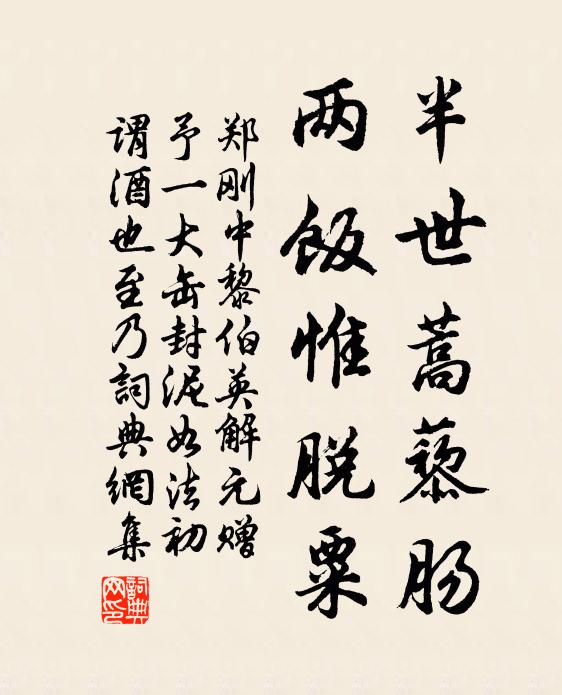 半世蒿藜肠
两饭惟脱粟
郑刚中黎伯英解元赠
予一大缶封泥如法初
谓酒也至乃詞典網集
詞典网印